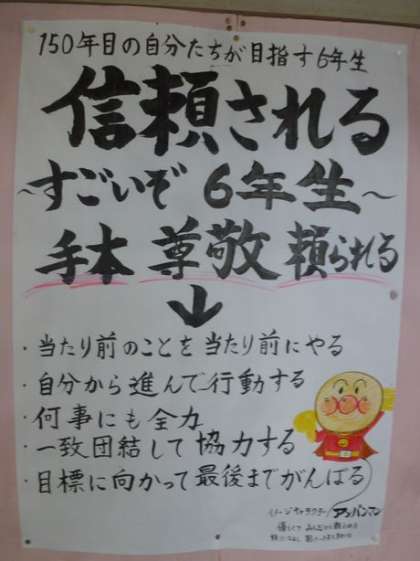 150年目の自分たちが目指す6年生
信頼される
~すごいぞ 6年生~
手本 尊敬 頼られる
↓
・当たり前のことを当たり前にやる
・自分から進んで行動する
・何事にも全力
・一致団結して協力する
・目標に向かって最後までがんばる
イメージキャラクター アンパンマン
優しくて みんなから